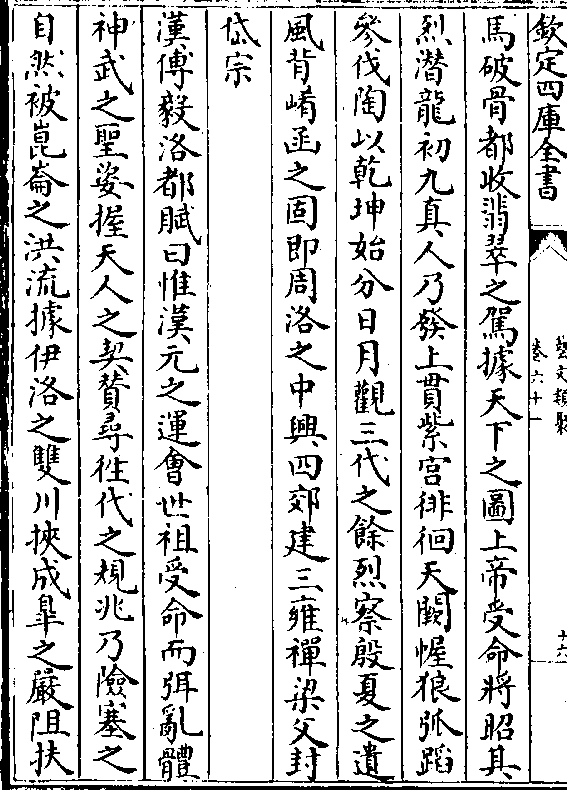 欽定四庫全書
藝文類聚
卷六十一
十六
馬破骨都收翡翠之駕據天下之圖上帝受命將昭其
烈潛龍初九真人乃發上貫紫宮徘徊天闕幄狼弧蹈
參伐陶以乾坤始分日月觀三代之餘烈察殷夏之遺
風背崤函之固即周洛之中興四郊建三雍禪梁父封
岱宗
漢傅毅洛都賦曰惟漢元之運會世祖受命而弭亂體
神武之聖姿握天人之契贊尋徃代之規兆乃險塞之
自然被崑崙之洪流據伊洛之雙川挾成臯之嚴阻扶